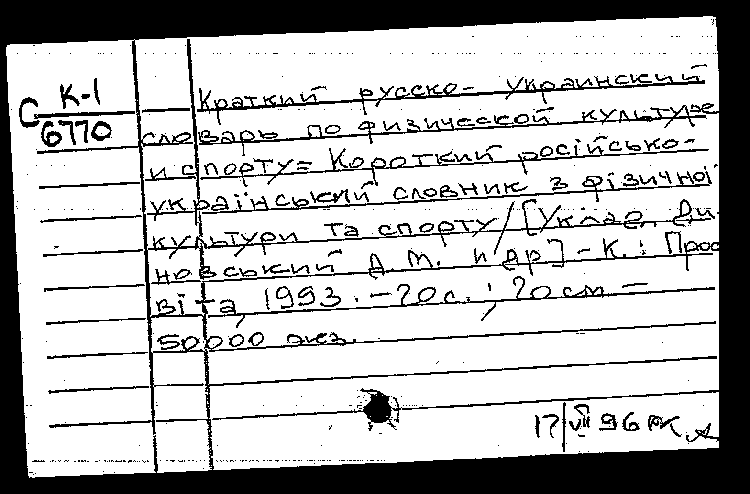 С К-1
6770
Краткий русско-украинский
словарь по физической культуре
и спорту = Короткий російсько-
український словник з фізичної
культури та спорту / [Уклад. Ди-
новський Д. М. и др] - К.: Прос
віта, 1993. - 70с.; 20см -
50000 экз.
17/VII 96 РК